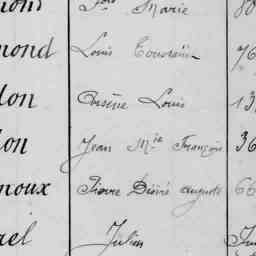 mond Jph Marie 80
mond Louis Toussaint 76
lon Arsène Louis 13
lon Jean Mie François 36
noux Pierre Désiré Auguste 66
rel Julien